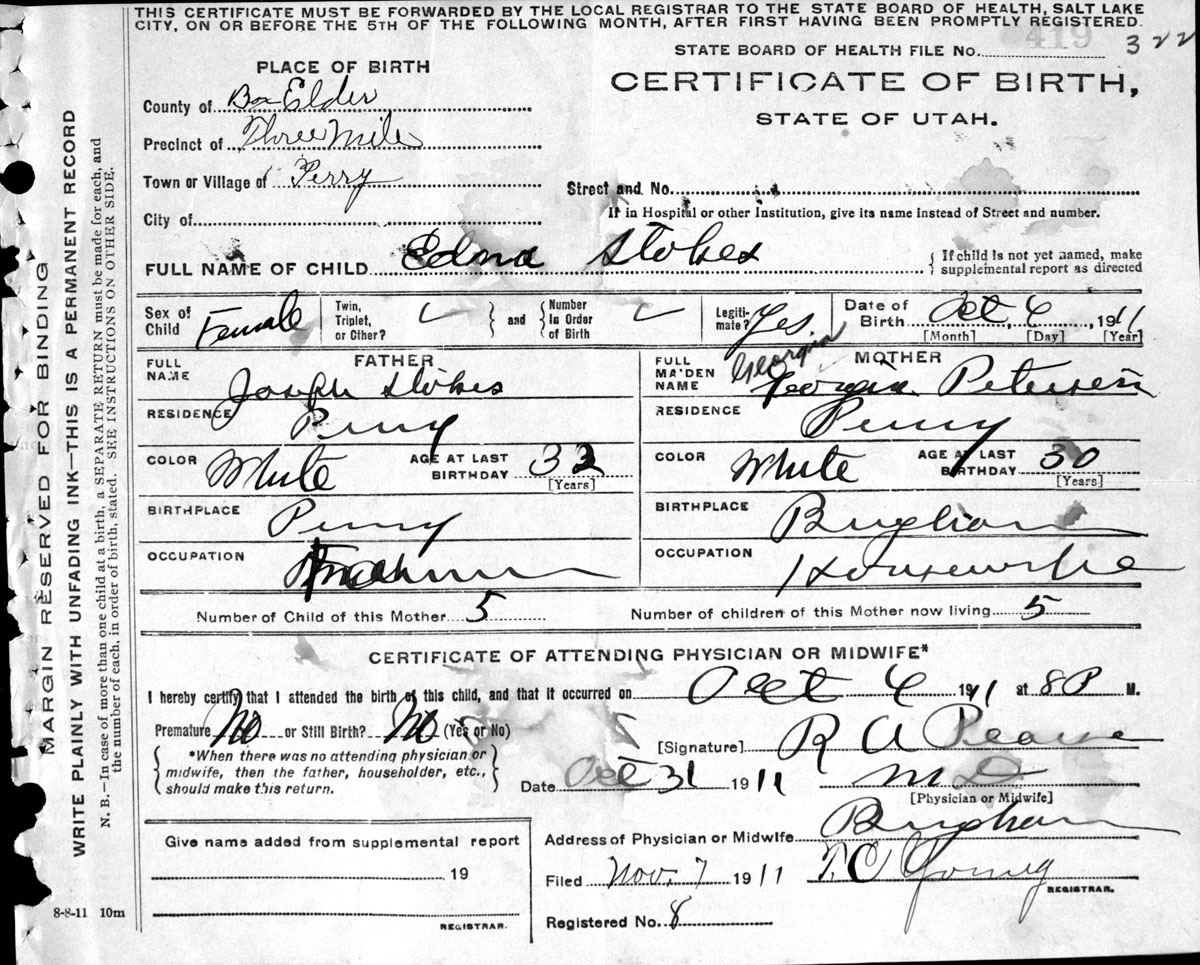 THIS CERTIFICATE MUST BE FORWARDED BY THE LOCAL REGISTRAR TO THE STATE BOARD OF HEALTH, SALT LAKE
CITY, ON OR BEFORE THE 5TH OF THE FOLLOWING MONTH, AFTER FIRST HAVING BEEN PROMPTLY REGISTERED.
STATE BOARD OF HEALTH FILE No. 419 322
PLACE OF BIRTH
CERTIFICATE OF BIRTH,
STATE OF UTAH.
County of Box Elder
Precinct of Three Mile
Town or Village of Perry
Street and No.
City of
If in Hospital or other Institution, give its name instead of Street and number.
FULL NAME OF CHILD Edna Stokes
{ If child is not yet named, make
supplemental report as directed
Sex of Child Female
Twin, Triplet, or Other?
and
Number in Order of Birth
Legiti-mate? Yes.
Date of Birth Oct 6, 1911
[Month] [Day] [Year]
FATHER
FULL NAME Joseph Stokes
RESIDENCE Perry
COLOR White AGE AT LAST BIRTHDAY 32
[Years]
BIRTHPLACE Perry
OCCUPATION
MOTHER
Georgia
FULL MAIDEN NAME Georgia Petersen
RESIDENCE Perry
COLOR White AGE AT LAST BIRTHDAY 30
[Years]
BIRTHPLACE Brigham
OCCUPATION Housewife
Number of Child of this Mother 5 Number of children of this Mother now living 5
CERTIFICATE OF ATTENDING PHYSICIAN OR MIDWIFE*
I hereby certify that I attended the birth of this child, and that it occurred on Oct 6 1911 at 8 P M.
Premature No or Still Birth? No (Yes or No)
[Signature] R A Pearse
*When there was no attending physician or
midwife, then the father, householder, etc.,
should make this return.
Date Oct 31 1911 M D
[Physician or Midwife]
Address of Physician or Midwife Brigham
Give name added from supplemental report
19
REGISTRAR.
Filed Nov. 7 1911 T. C Young
REGISTRAR.
Registered No. 8
8-8-11 10m
MARGIN RESERVED FOR BINDING
WRITE PLAINLY WITH UNFADING INK—THIS IS A PERMANENT RECORD
N. B.—In case of more than one child at a birth, a SEPARATE RETURN must be made for each, and
the number of each, in order of birth, stated. SEE INSTRUCTIONS ON OTHER SIDE.